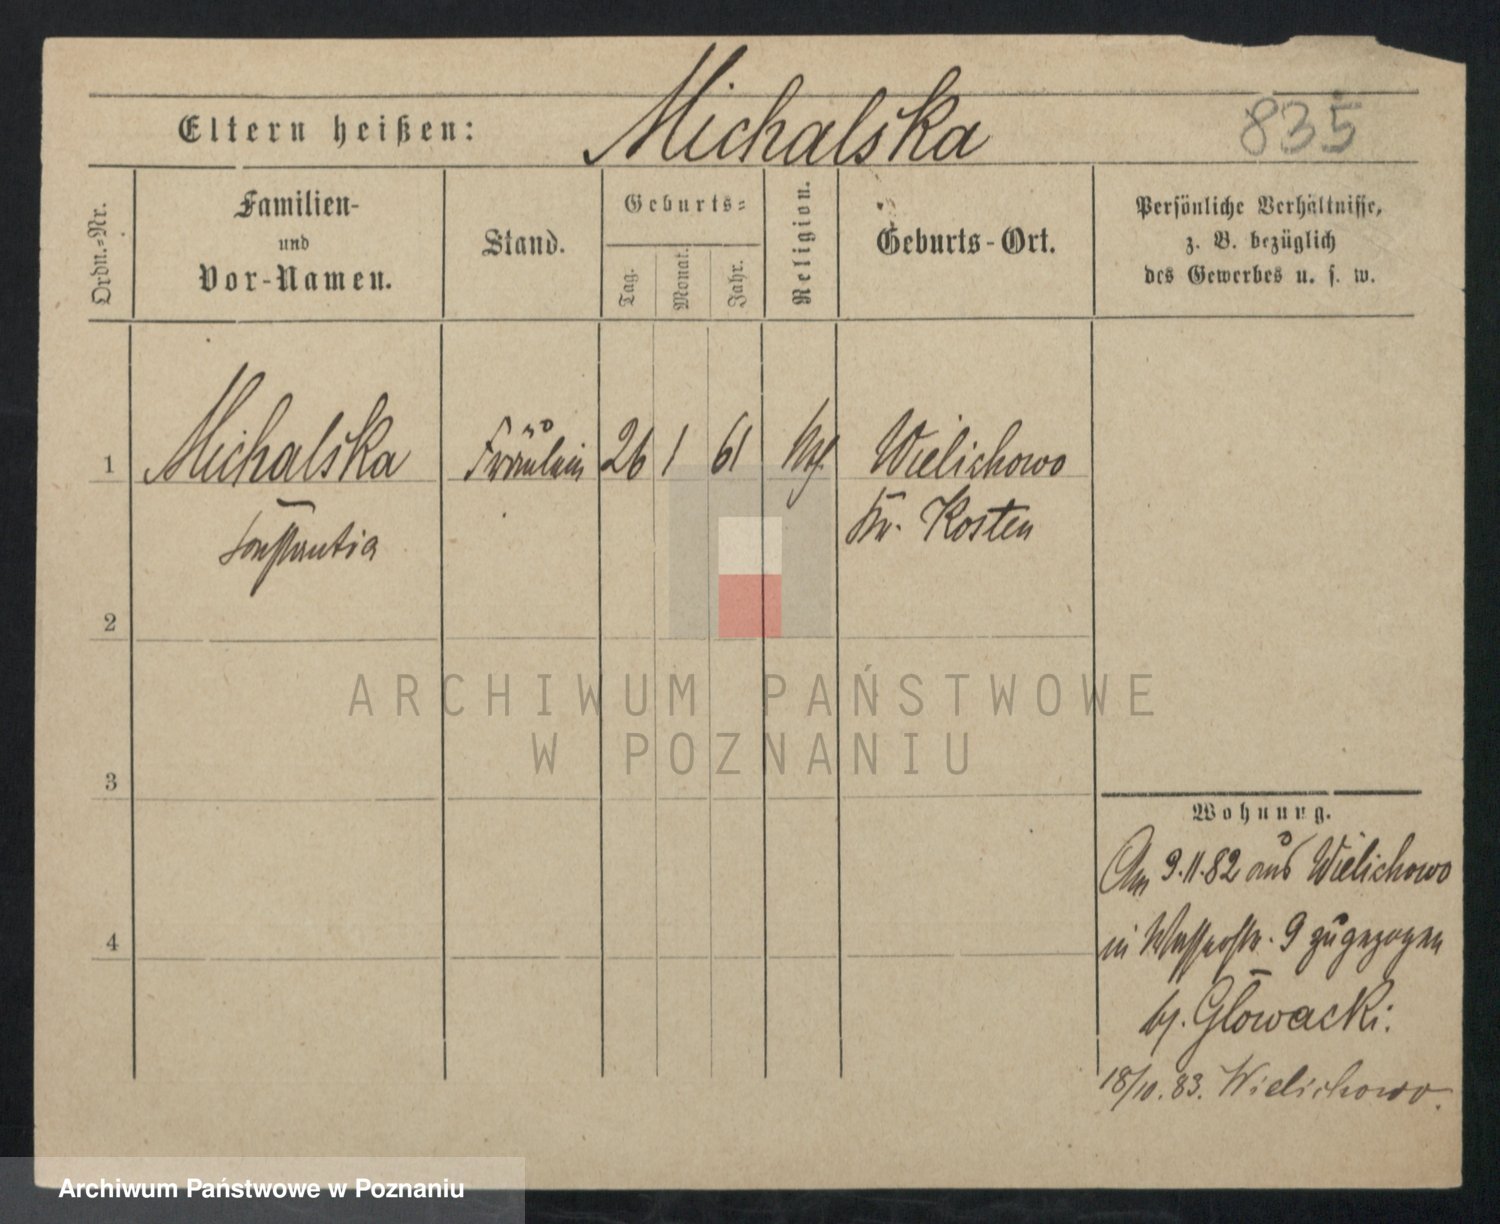 Eltern heißen: Michalska 835
Ordn.-Nr.
Familien-
und
Vor-Namen.
Stand.
Geburts-
Tag.
Monat.
Jahr.
Religion.
Geburts-Ort.
Persönliche Verhältnisse,
z. B. bezüglich
des Gewerbes u. s. w.
1 Michalska Fräulein 26 1 61 Wielichowo
Constantia Kr. Kosten
2
3
4
Wohnung.
Am 9.11.82 aus Wielichowo
in Wasserstr. 9 zugezogen
bj. Głowacki.
18/10.83. Wielichowo.
ARCHIWUM PAŃSTWOWE
W POZNANIU
Archiwum Państwowe w Poznaniu